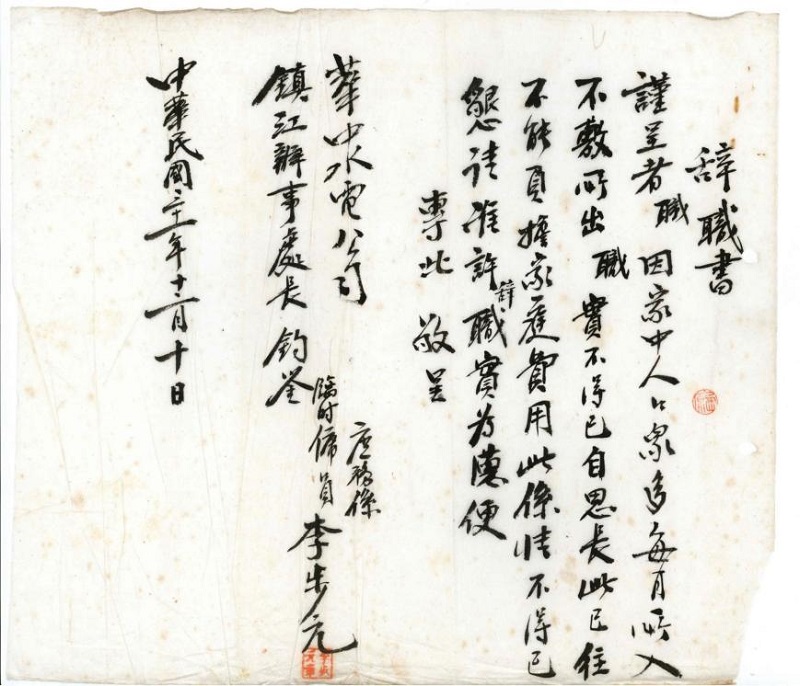 辞職書
謹呈者職因家中人口衆多每月所入
不敷所出職實不得已自思長此已往
不能負擔家庭費用此係情不得已
懇請准許辞職實为德便
專此敬呈
華中水電公司
鎮江辦事處長鈞鉴
庶務係
臨时傭員李步元
中華民國三十一年十二月十日